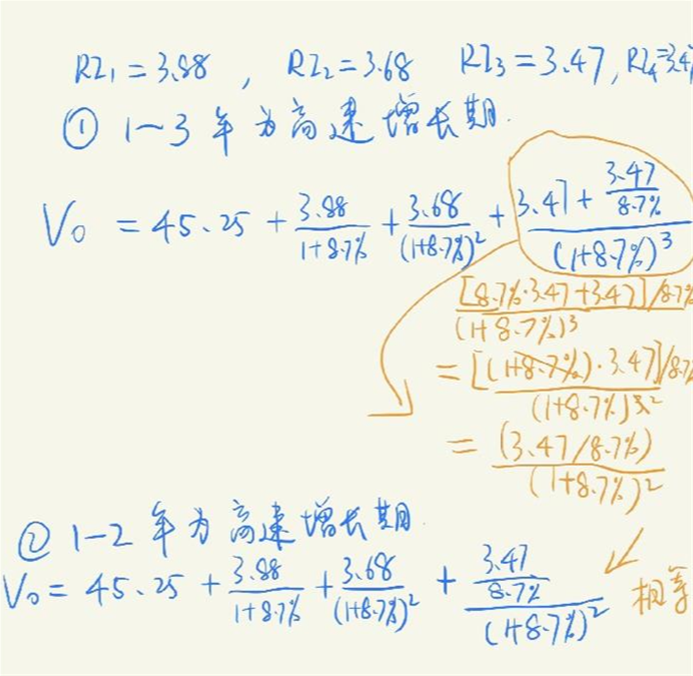 RI₁ = 3.88 , RI₂ = 3.68 RI₃ = 3.47, RI₄=3.47
① 1~3年为高速增长期.
V₀ = 45.25 + 3.88/(1+8.7%) + 3.68/(1+8.7%)² + (3.47 + 3.47/8.7%)/(1+8.7%)³
[8.7%·3.47+3.47]/8.7%/(1+8.7%)³
= [(1+8.7%)·3.47]/8.7%/(1+8.7%)³²
= (3.47/8.7%)/(1+8.7%)²
② 1-2年为高速增长期.
V₀ = 45.25 + 3.88/(1+8.7%) + 3.68/(1+8.7%)² + (3.47/8.7%)/(1+8.7%)² 相等